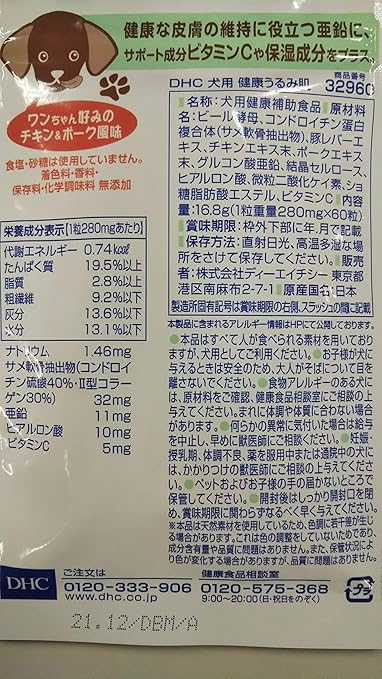 健康な皮膚の維持に役立つ亜鉛に、
サポート成分ビタミンCや保湿成分をプラス。
ワンちゃん好みの
チキン&ポーク風味
食塩・砂糖は使用していません。
着色料・香料・
保存料・化学調味料 無添加
栄養成分表示【1粒280mgあたり】
代謝エネルギー 0.74kcal
たんぱく質 19.5%以上
脂質 2.8%以上
粗繊維 9.2%以下
灰分 13.6%以下
水分 13.1%以下
ナトリウム 1.46mg
サメ軟骨抽出物(コンドロイ
チン硫酸40%・Ⅱ型コラー
ゲン30%) 32mg
亜鉛 11mg
ヒアルロン酸 10mg
ビタミンC 5mg
DHC 犬用 健康うるみ肌
商品番号
32960
●名称:犬用健康補助食品●原材料
名:ビール酵母、コンドロイチン蛋白
複合体(サメ軟骨抽出物)、豚レバーエ
キス、チキンエキス末、ポークエキス
末、グルコン酸亜鉛、結晶セルロース、
ヒアルロン酸、微粒二酸化ケイ素、ショ
糖脂肪酸エステル、ビタミンC●内容
量:16.8g(1粒重量280mg×60粒)
●賞味期限:枠外下部に年.月で記載
●保存方法:直射日光、高温多湿な場
所をさけて保存してください。●販売
者:株式会社ディーエイチシー 東京都
港区南麻布2-7-1●原産国名:日本
製造所固有記号は賞味期限の右側、スラッシュの間に記載
本製品に含まれるアレルギー情報はHPにて公開しております。
●本品はすべて人が食べられる素材を用いており
ますが、犬用としてご利用ください。●お子様が犬
に与えるときは安全のため、大人がそばについて目を
離さないでください。●食物アレルギーのある犬に
は、原材料をご確認、健康食品相談室にご相談の上
与えてください。まれに体調や体質に合わない場合
があります。●何らかの異常に気付いた場合は給与
を中止し、早めに獣医師にご相談ください。●妊娠・
授乳期、体調不良、薬を服用中または通院中の犬に
は、かかりつけの獣医師にご相談の上与えてくださ
い。●ペットおよびお子様の手の届かないところで
保管してください。●開封後はしっかり開封口を閉
め、賞味期限に関わらずなるべく早く与えてください。
※本品は天然素材を使用しているため、色調に若干差が生じ
る場合があります。これは色の調整をしていないためであり、
成分含有量や品質に問題はありません。また、保管状況によ
り色が変化する場合がありますが、品質に問題はありません。
DHC
ご注文は
0120-333-906
www.dhc.co.jp
健康食品相談室
0120-575-368
9:00~20:00(日・祝日をのぞく)
プラ
21.12/DBM/A